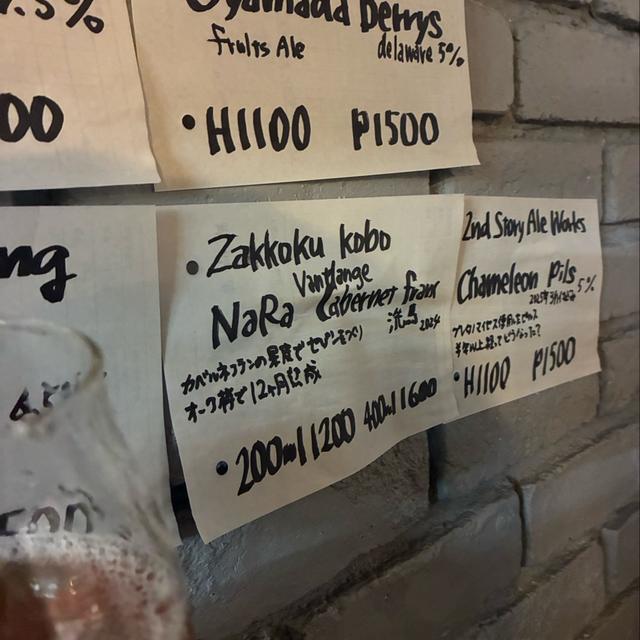 .5%
00
Oyamada Berrys
fruits Ale delaware 5%
•H1100 P1500
ng
• Zakkoku kobo
Vantlange
NaRa Cabernet franc
2024
カベルネフランの果皮でセゾンをつくり
オーク樽で12ヶ月熟成
•200ml1200 400ml1600
2nd Story Ale Works
Chameleon Pils 5%
•H1100 P1500
500